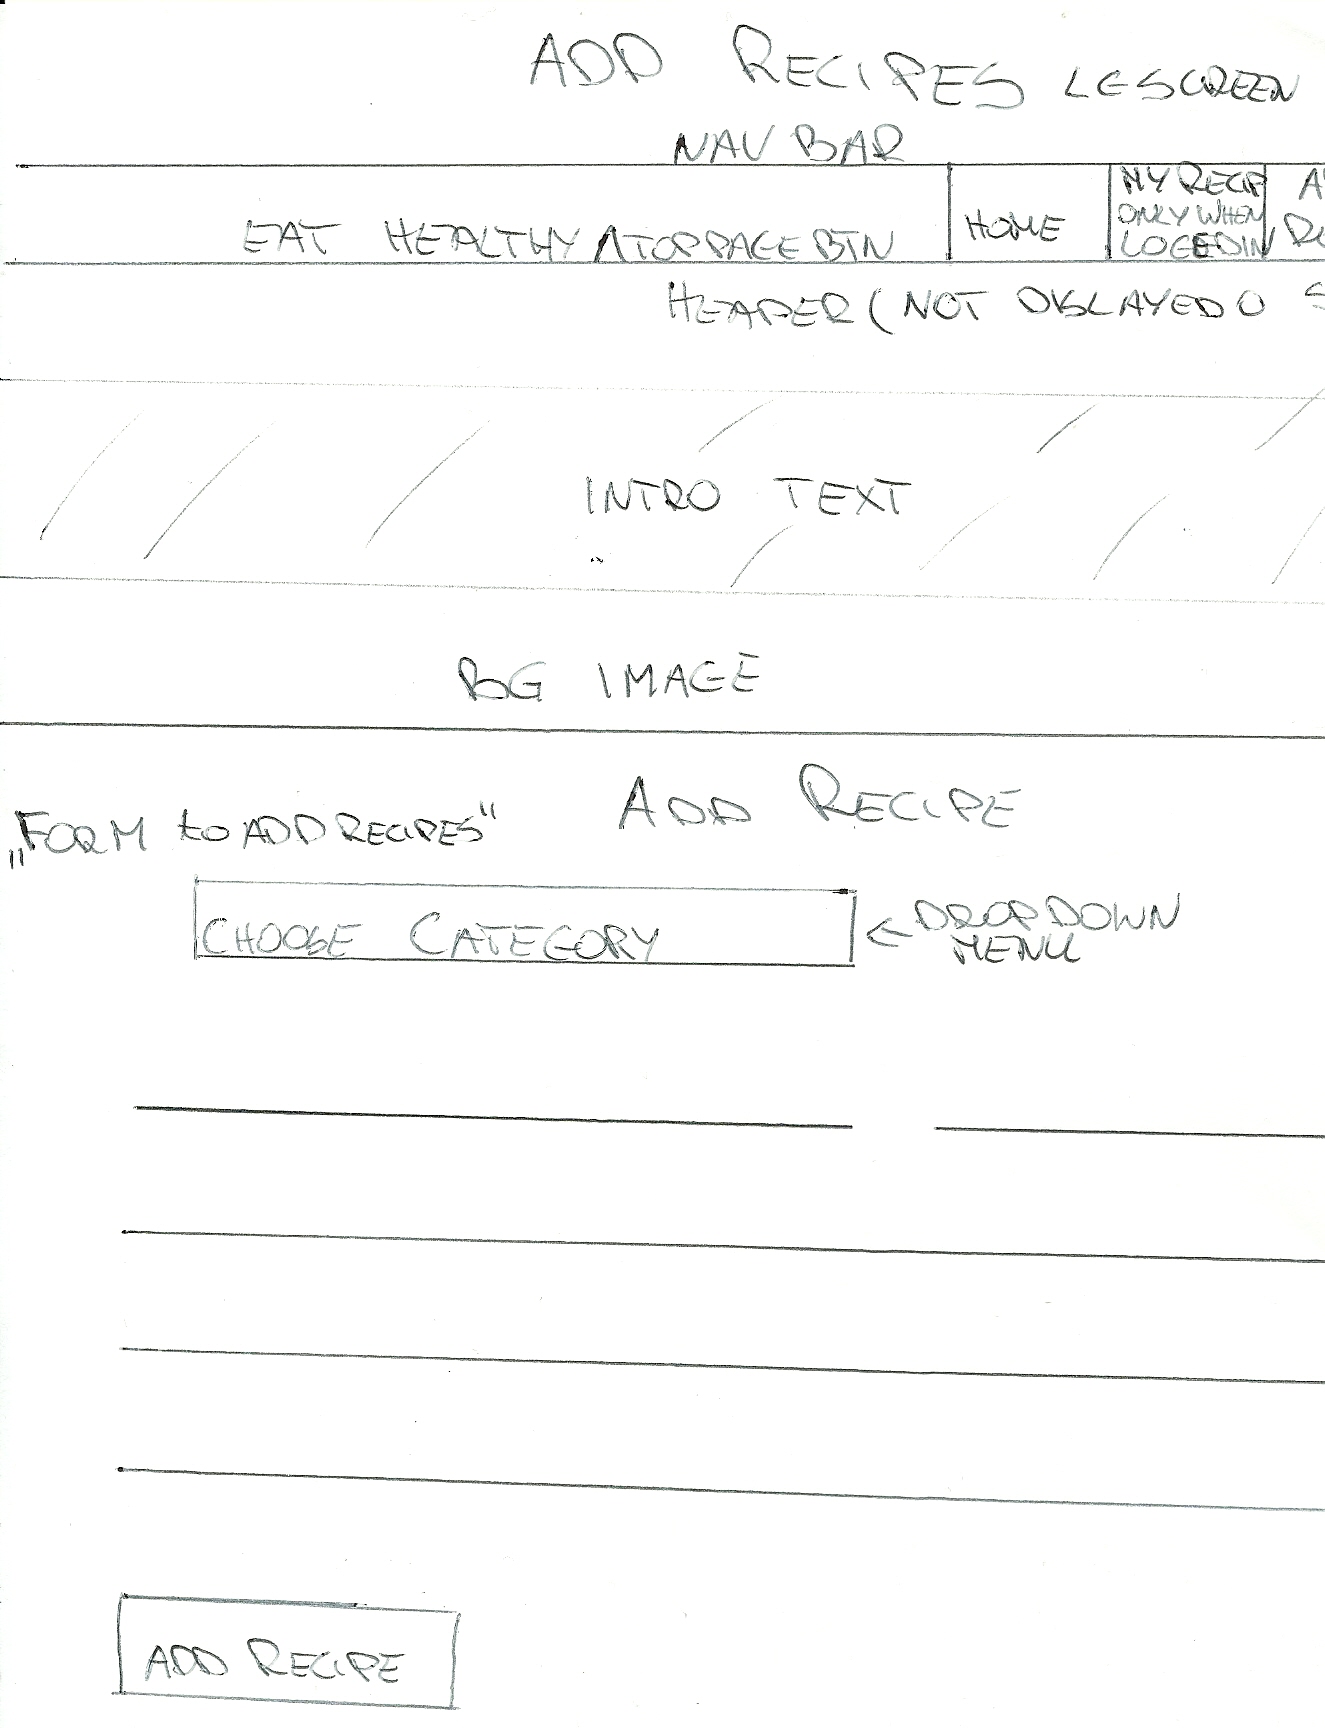 ADD RECIPES LG SCREEN
NAV BAR
EAT HEALTHY ATOPPAGE BTN
HOME
MY RECIP
ONLY WHEN
LOGEDIN
A
HEADER (NOT DISLAYED O S
INTRO TEXT
BG IMAGE
ADD RECIPE
„FORM to ADD RECIPES"
CHOOSE CATEGORY
← DROPDOWN
MENU
ADD RECIPE